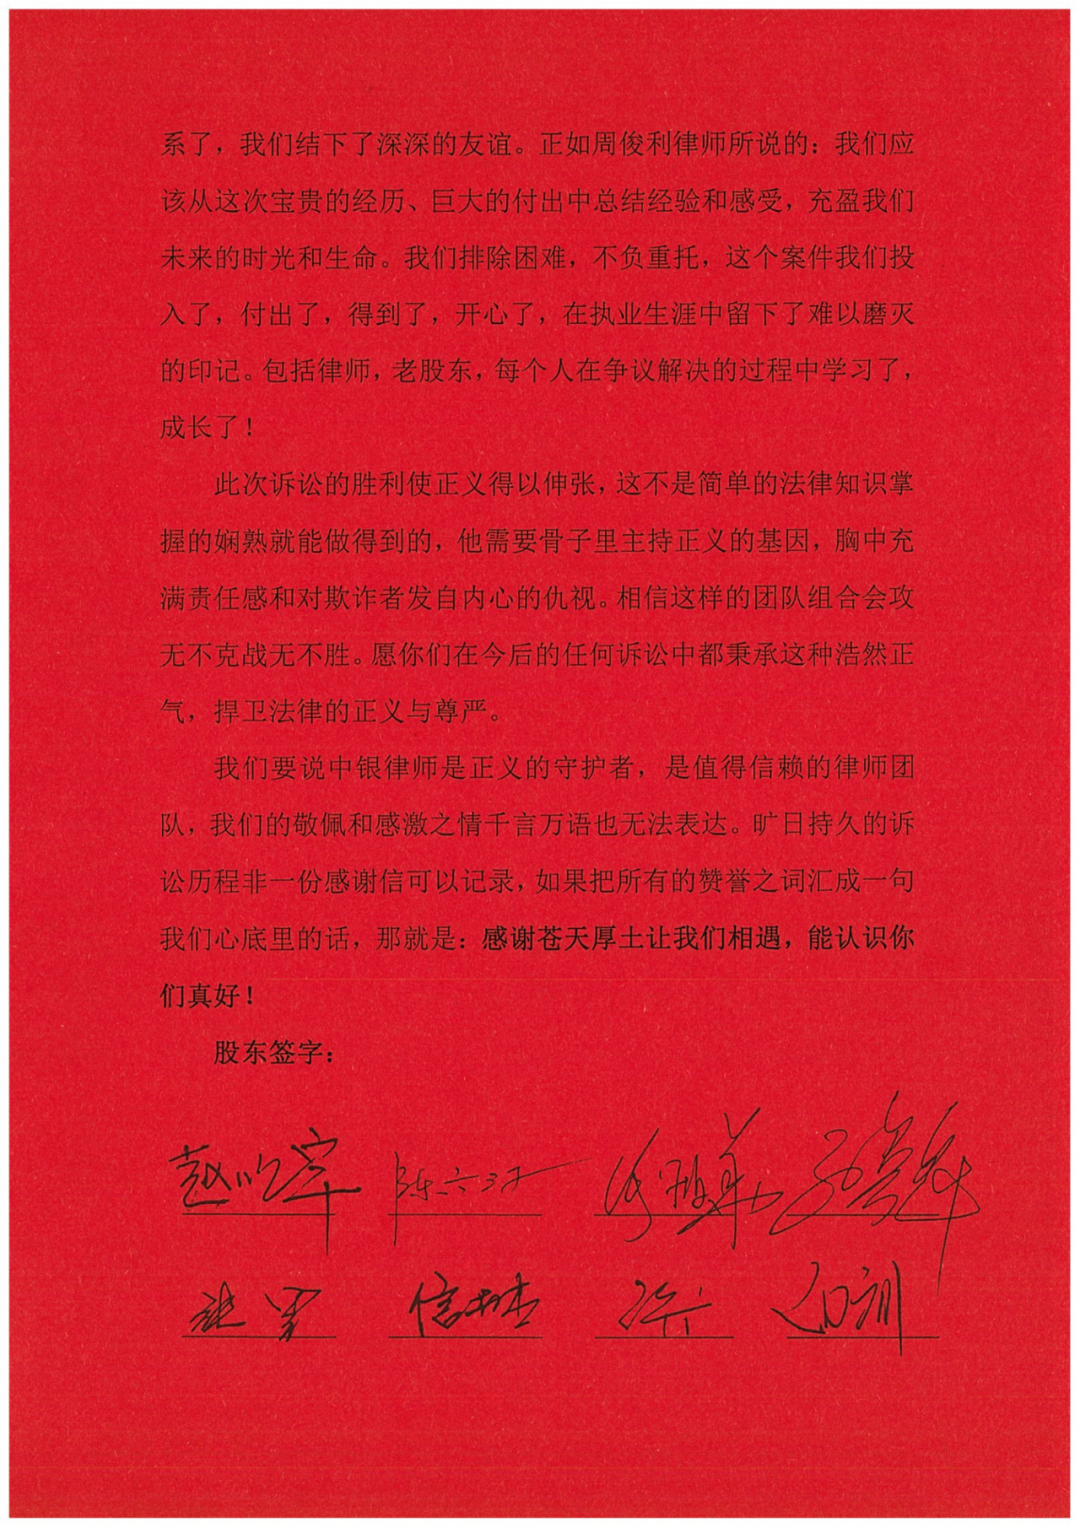 系了，我们结下了深深的友谊。正如周俊利律师所说的：我们应
该从这次宝贵的经历、巨大的付出中总结经验和感受，充盈我们
未来的时光和生命。我们排除困难，不负重托，这个案件我们投
入了，付出了，得到了，开心了，在执业生涯中留下了难以磨灭
的印记。包括律师，老股东，每个人在争议解决的过程中学习了，
成长了！
此次诉讼的胜利使正义得以伸张，这不是简单的法律知识掌
握的娴熟就能做得到的，他需要骨子里主持正义的基因，胸中充
满责任感和对欺诈者发自内心的仇视。相信这样的团队组合会攻
无不克战无不胜。愿你们在今后的任何诉讼中都秉承这种浩然正
气，捍卫法律的正义与尊严。
我们要说中银律师是正义的守护者，是值得信赖的律师团
队，我们的敬佩和感激之情千言万语也无法表达。旷日持久的诉
讼历程非一份感谢信可以记录，如果把所有的赞誉之词汇成一句
我们心底里的话，那就是：感谢苍天厚土让我们相遇，能认识你
们真好！
股东签字：